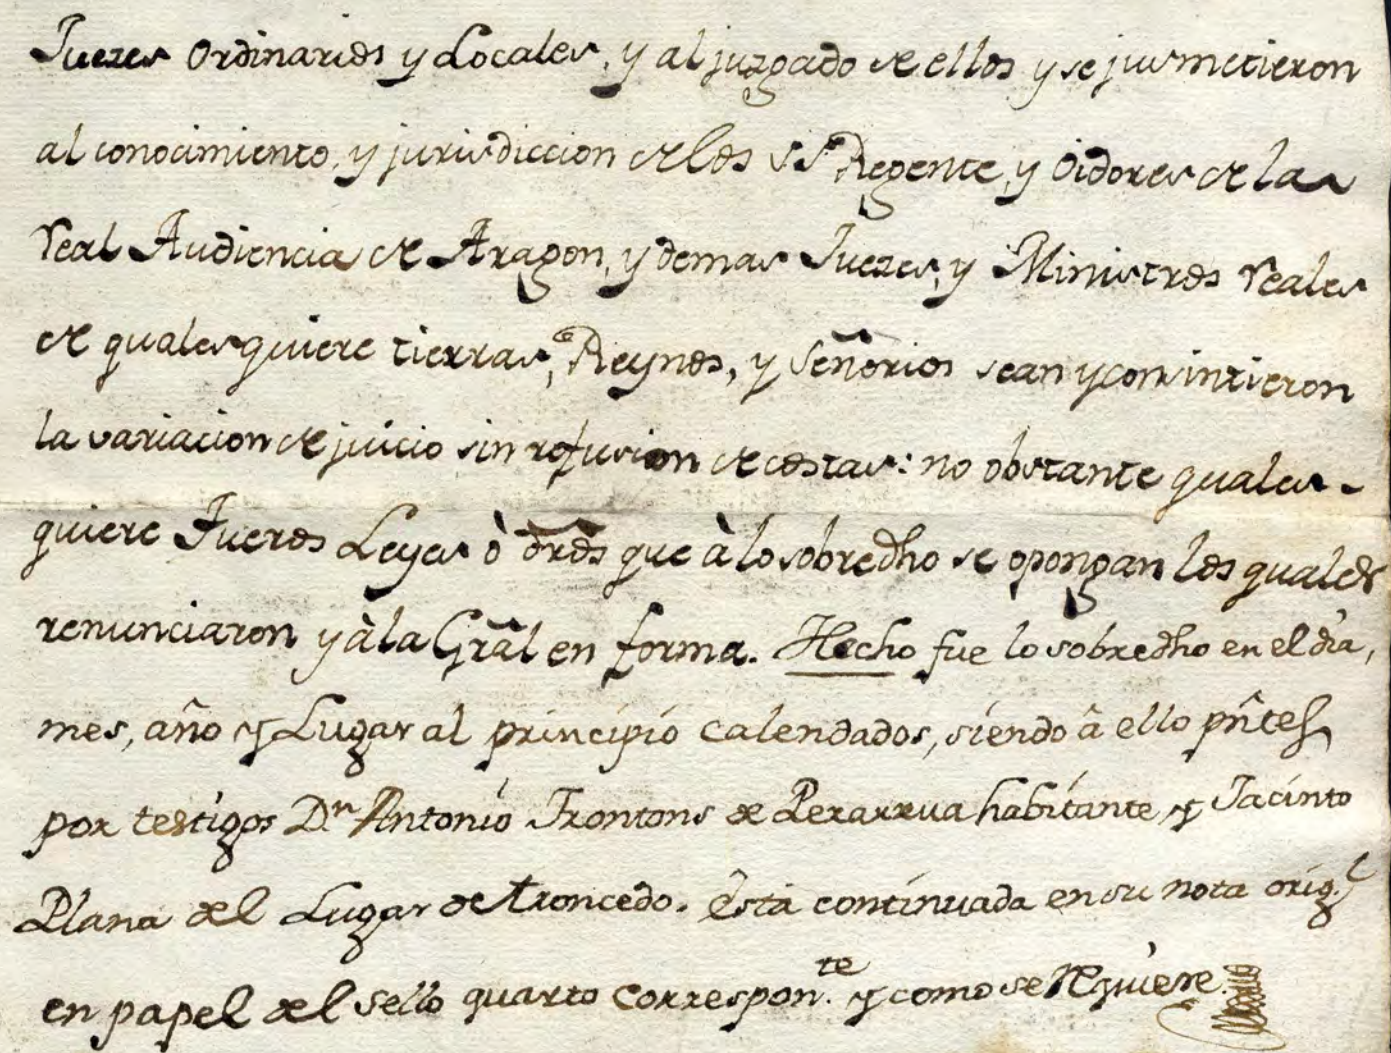 Juezes Ordinarios y Locales, y al juzgado de ellos y se jusmetieron
al conocimiento, y jurisdiccion de los SS.res Regente, y Oidores de la
real Audiencia de Aragon, y demas Juezes, y Ministros reales
de quales quiere tierras, Reynos, y Señorios sean y consintieron
la variacion de juicio sin refusion de costas: no obstante quales-
quiere Fueros Leyes ò ōrēs que à lo sobredho se opongan los quales
renunciaron y à la Grāl en forma. Hecho fue lo sobredho en el dia,
mes, año y Lugar al principio calendados, siendo â ello pñtes
por testigos Dn Antonio Frontons de Perarrua habitante, y Jacinto
Plana del Lugar de Troncedo. Esta continuada en su nota orig.l
en papel del sello quarto correspon.te y como se requiere.